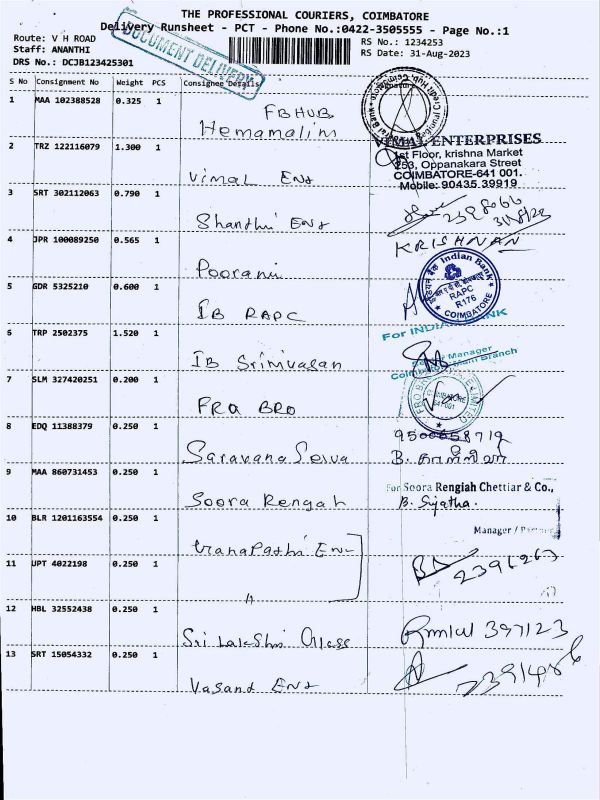 THE PROFESSIONAL COURIERS, COIMBATORE
Delivery Runsheet - PCT - Phone No.:0422-3505555 - Page No.:1
Route: V H ROAD
RS No.: 1234253
Staff: ANANTHI
RS Date: 31-Aug-2023
DRS No.: DCJB123425301
DOCUMENT DELIVERY
S No Consignment No Weight PCS Consignee Details Signature
1 MAA 102388528 0.325 1
FBHUB
Hemamalini
2 TRZ 122116079 1.300 1
VIMAL ENTERPRISES
1st Floor, krishna Market
253, Oppanakara Street
COIMBATORE-641 001.
Mobile: 90435 39919
Vimal Ent
3 SRT 302112063 0.790 1
31/8/23
Shanthi Ent
KRISHNAN
4 JPR 100089250 0.565 1
Indian Bank
RAPC
R176
COIMBATORE
Poorani
5 GDR 5325210 0.600 1
IB RAPC
For INDIAN BANK
6 TRP 2502375 1.520 1
Manager
Coimbatore Main Branch
IB Srinivasan
7 SLM 327420251 0.200 1
COIMBATORE
641 001
FRO BRO
8 EDQ 11388379 0.250 1
9500658719
Saravana Selva
B.
9 MAA 860731453 0.250 1
For Soora Rengiah Chettiar & Co.,
B. Sujatha.
Soora Rengah
Manager /
10 BLR 1201163554 0.250 1
Ganapathi Ent
11 UPT 4022198 0.250 1
2396263
12 HBL 32552438 0.250 1
397123
Sri Lakshmi Glass
13 SRT 15054332 0.250 1
Vasant Ent